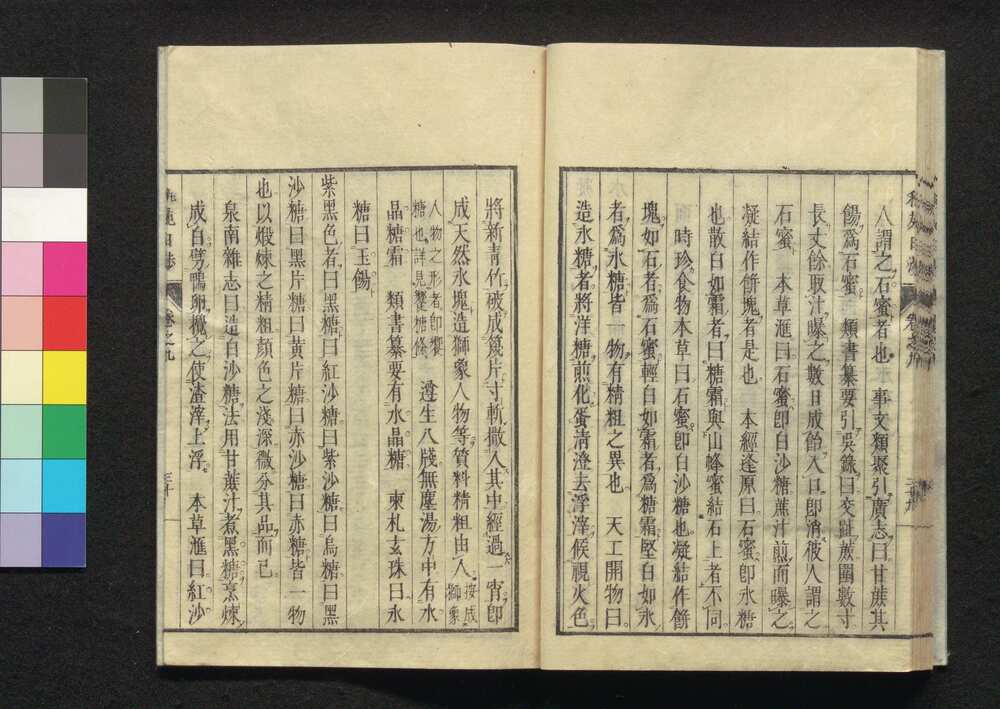 人謂之石蜜者也 事文類聚引廣志曰甘蔗其
餳爲石蜜 類書纂要引吳錄曰交趾蔗圍數寸
長丈餘取汁曝之數日成飴入口卽消彼人謂之
石蜜 本草滙曰石蜜卽白沙糖蔗汁煎而曝之
凝結作餅塊者是也 本經逢原曰石蜜卽氷糖
也散白如霜者曰糖霜與山蜂蜜結石上者不同
時珍食物本草曰石蜜卽白沙糖也凝結作餅
塊如石者爲石蜜輕白如霜者爲糖霜堅白如氷
者爲氷糖皆一物有精粗之異也 天工開物曰
造氷糖者將洋糖煎化蛋淸澄去浮滓候視火色
將新靑竹破成篾片寸斬撒入其中經過一宵卽
成天然氷塊造獅象人物等質料精粗由人 按成獅象
人物之形者卽饗糖也詳見饗糖條 遵生八牋無塵湯方中有水
晶糖霜 類書纂要有水晶糖 柬札玄珠曰氷
糖曰玉餳
紫黑色者曰黑糖曰紅沙糖曰紫沙糖曰烏糖曰黑
沙糖曰黑片糖曰黃片糖曰赤沙糖曰赤糖皆一物
也以煅煉之精粗顏色之淺深微分其品而已
泉南雜志曰造白沙糖法用甘蔗汁煮黑糖烹煉
成白劈鴨卵攪之使渣滓上浮 本草滙曰紅沙
卷之九
三十